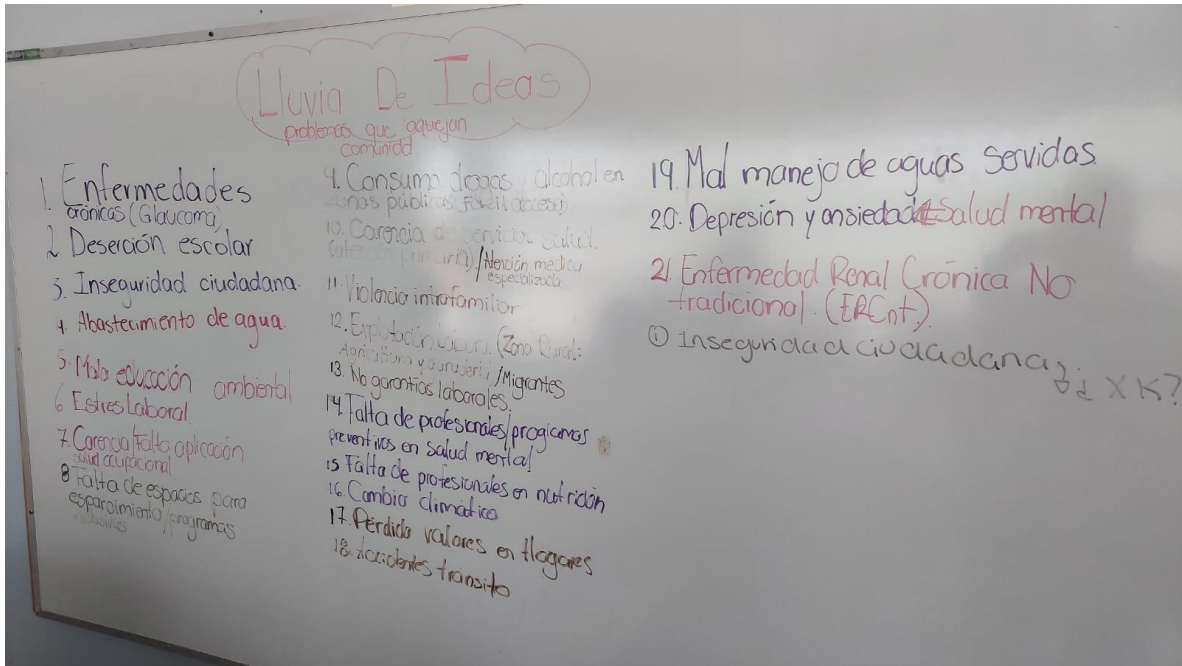 Lluvia De Ideas
problemas que aquejan
comunidd
1. Enfermedades
crónicas (Glaucoma)
2. Deserción escolar
3. Inseguridad ciudadana.
4. Abastecimiento de agua.
5. Mala educación ambiental
6. Estres Laboral
7. Carencia/Falta aplicación
salud ocupacional
8 Falta de espacios para
esparcimiento/programas
inclusivos
9. Consumo drogas, alcohol en
zonas públicas (Fácil acceso)
10. Carencia de servicios salud.
(atención primaria)/Atención médica
especializada
11. Violencia intrafamiliar
12. Explotación laboral (Zona Rural:
Agricultura y /Migrantes
13. No garantías laborales.
14. Falta de profesionales/programas
preventivos en salud mental
15 Falta de profesionales en nutrición
16. Cambio climático
17. Pérdida valores en Hogares
18. Accidentes tránsito
19. Mal manejo de aguas servidas.
20. Depresión y ansiedad Salud mental
21. Enfermedad Renal Crónica No
tradicional. (ERCnt).
① Inseguridad ciudadana ¿ X K?